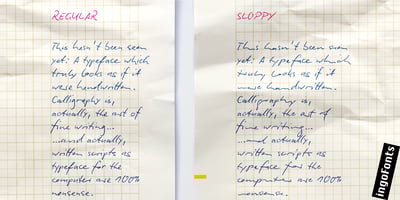 REGULAR
This hasn't been seen
yet: A typeface which
truly looks as if it
were handwritten.
Calligraphy is,
actually, the art of
fine writing...
...and actually,
written scripts as
typeface for the
computer are 100%
nonsense.
SLOPPY
This hasn't been seen
yet: A typeface which
truly looks as if it
were handwritten.
Calligraphy is,
actually, the art of
fine writing...
...and actually,
written scripts as
typeface for the
computer are 100%
nonsense.
IngoFonts